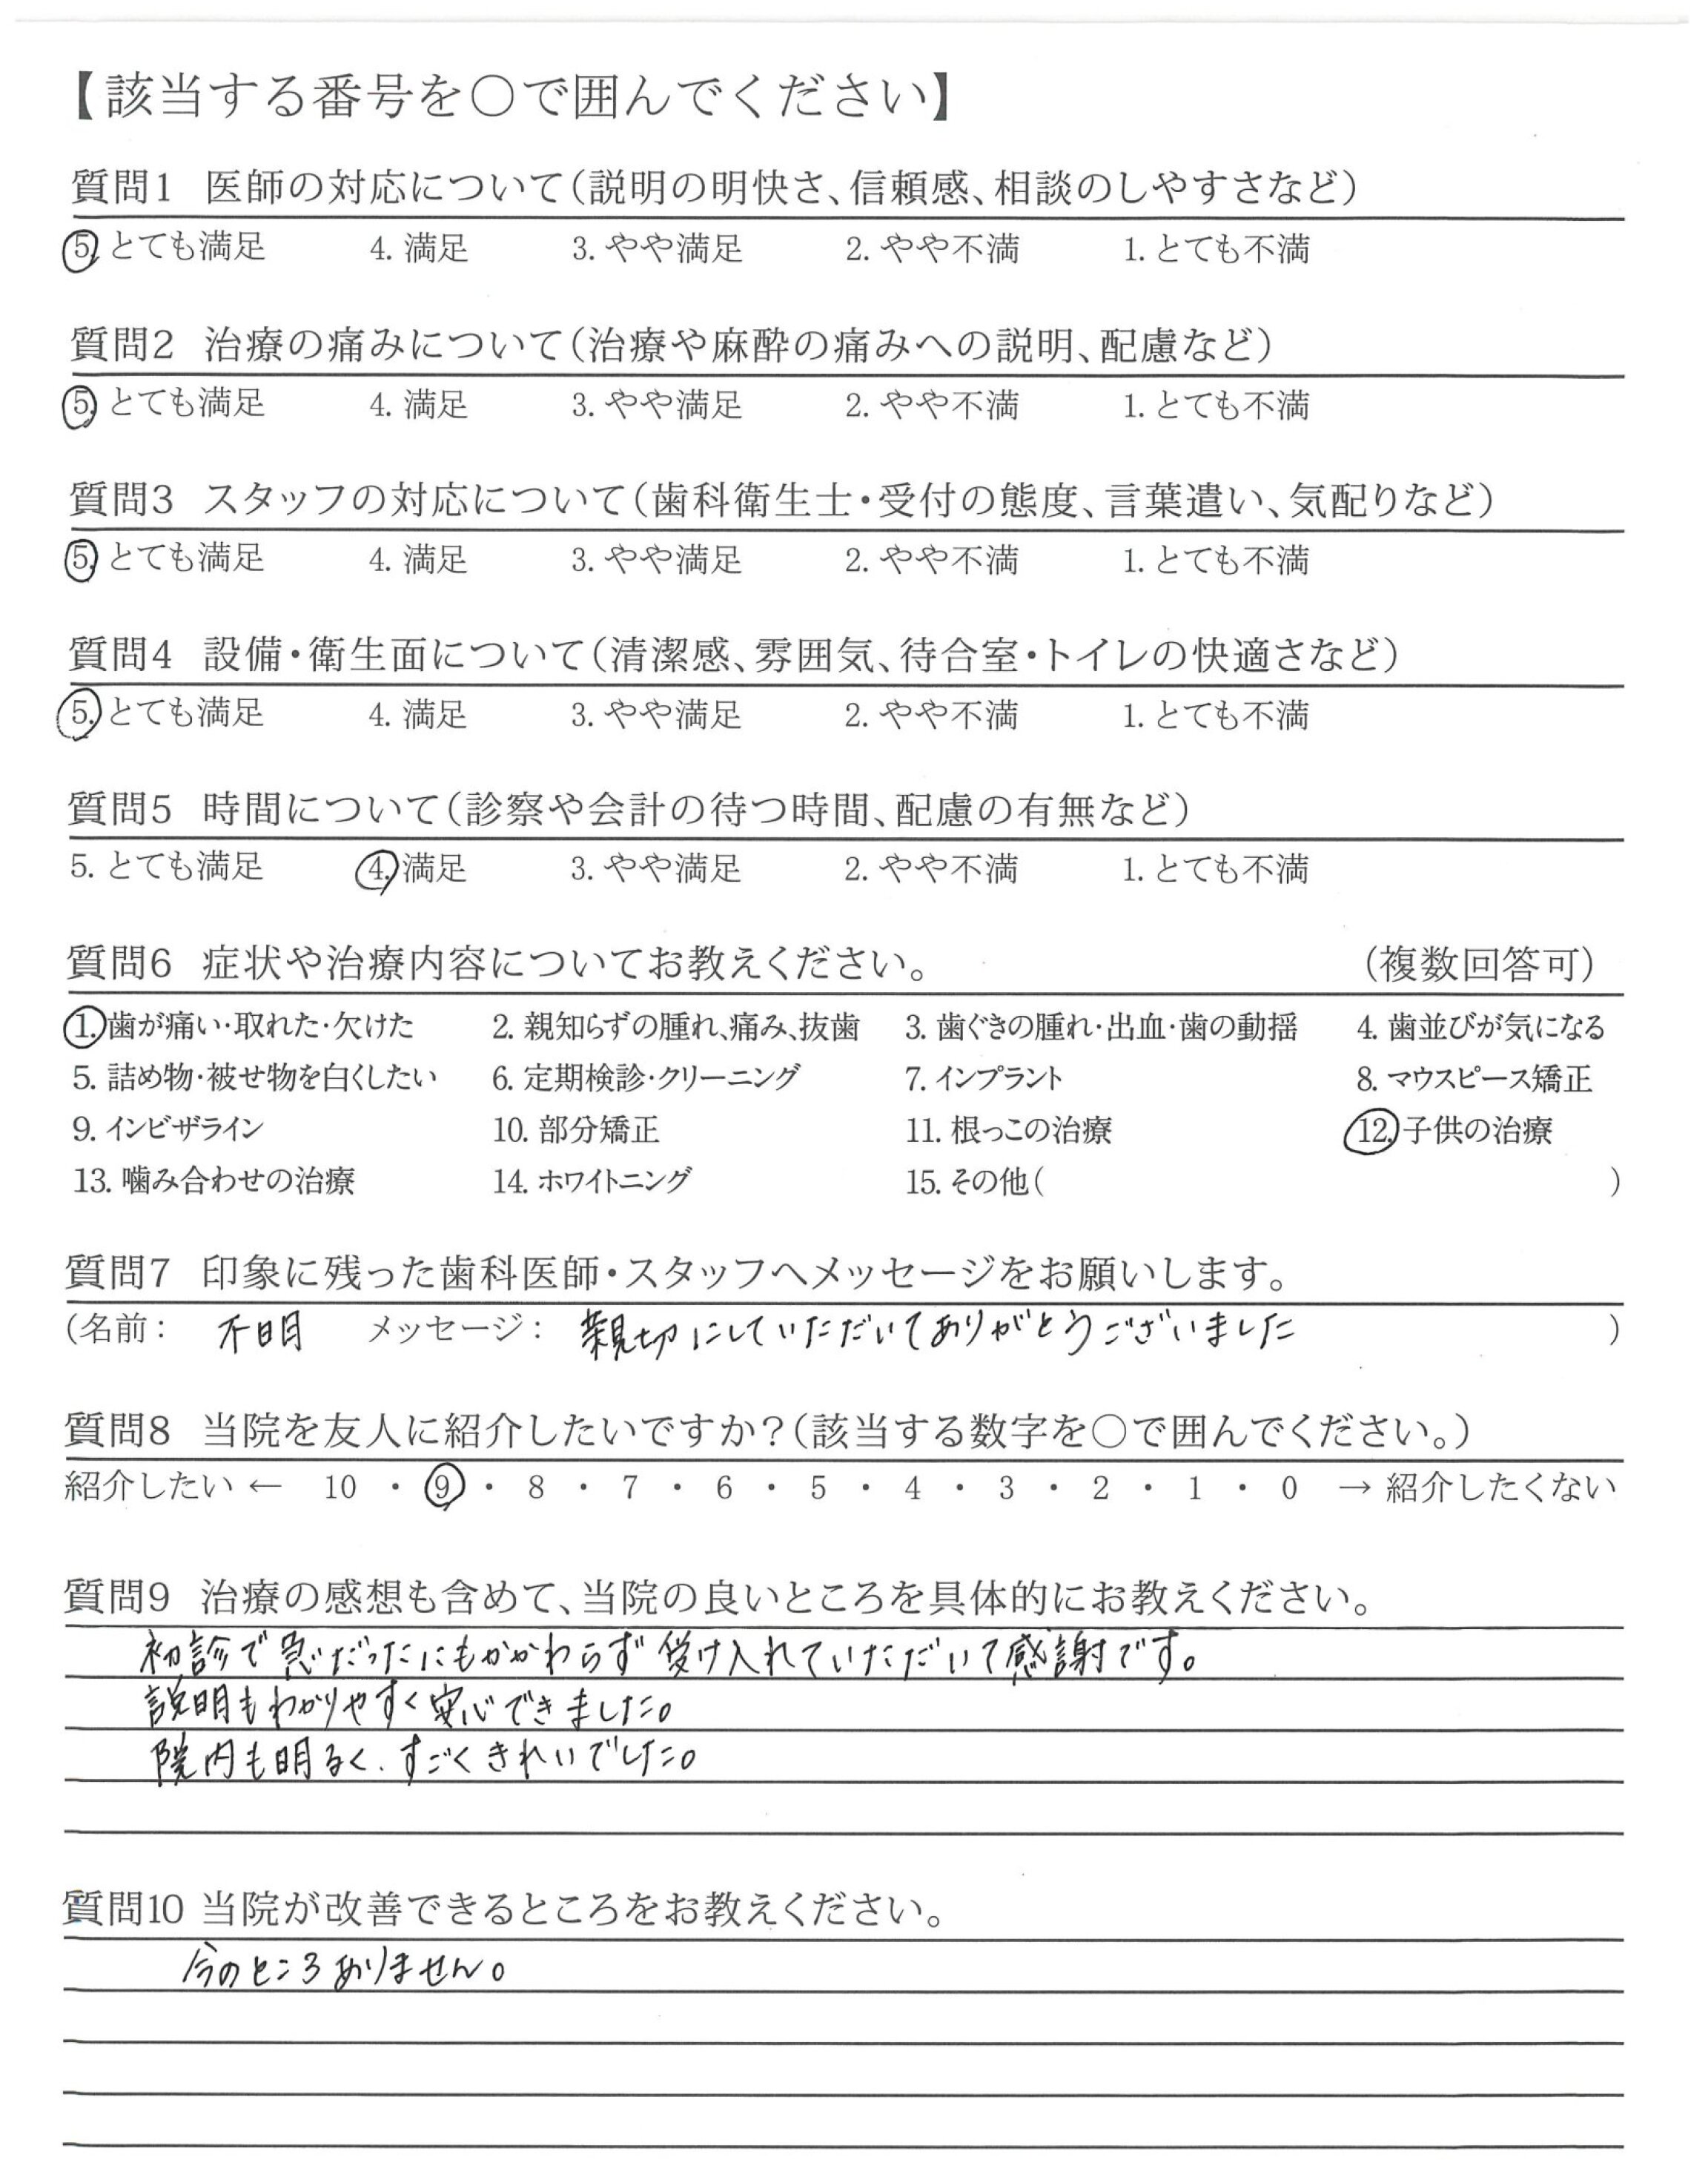 【該当する番号を○で囲んでください】
質問1 医師の対応について（説明の明快さ、信頼感、相談のしやすさなど）
5. とても満足 4. 満足 3. やや満足 2. やや不満 1. とても不満
質問2 治療の痛みについて（治療や麻酔の痛みへの説明、配慮など）
5. とても満足 4. 満足 3. やや満足 2. やや不満 1. とても不満
質問3 スタッフの対応について（歯科衛生士・受付の態度、言葉遣い、気配りなど）
5. とても満足 4. 満足 3. やや満足 2. やや不満 1. とても不満
質問4 設備・衛生面について（清潔感、雰囲気、待合室・トイレの快適さなど）
5. とても満足 4. 満足 3. やや満足 2. やや不満 1. とても不満
質問5 時間について（診察や会計の待つ時間、配慮の有無など）
5. とても満足 4. 満足 3. やや満足 2. やや不満 1. とても不満
質問6 症状や治療内容についてお教えください。 （複数回答可）
1. 歯が痛い・取れた・欠けた 2. 親知らずの腫れ、痛み、抜歯 3. 歯ぐきの腫れ・出血・歯の動揺 4. 歯並びが気になる
5. 詰め物・被せ物を白くしたい 6. 定期検診・クリーニング 7. インプラント 8. マウスピース矯正
9. インビザライン 10. 部分矯正 11. 根っこの治療 12. 子供の治療
13. 噛み合わせの治療 14. ホワイトニング 15. その他（ ）
質問7 印象に残った歯科医師・スタッフへメッセージをお願いします。
（名前： 不明 メッセージ： 親切にしていただいてありがとうございました ）
質問8 当院を友人に紹介したいですか？（該当する数字を○で囲んでください。）
紹介したい ← 10 ・ 9 ・ 8 ・ 7 ・ 6 ・ 5 ・ 4 ・ 3 ・ 2 ・ 1 ・ 0 → 紹介したくない
質問9 治療の感想も含めて、当院の良いところを具体的にお教えください。
初診で急だったにもかかわらず受け入れていただいて感謝です。
説明もわかりやすく安心できました。
院内も明るく、すごくきれいでした。
質問10 当院が改善できるところをお教えください。
今のところありません。